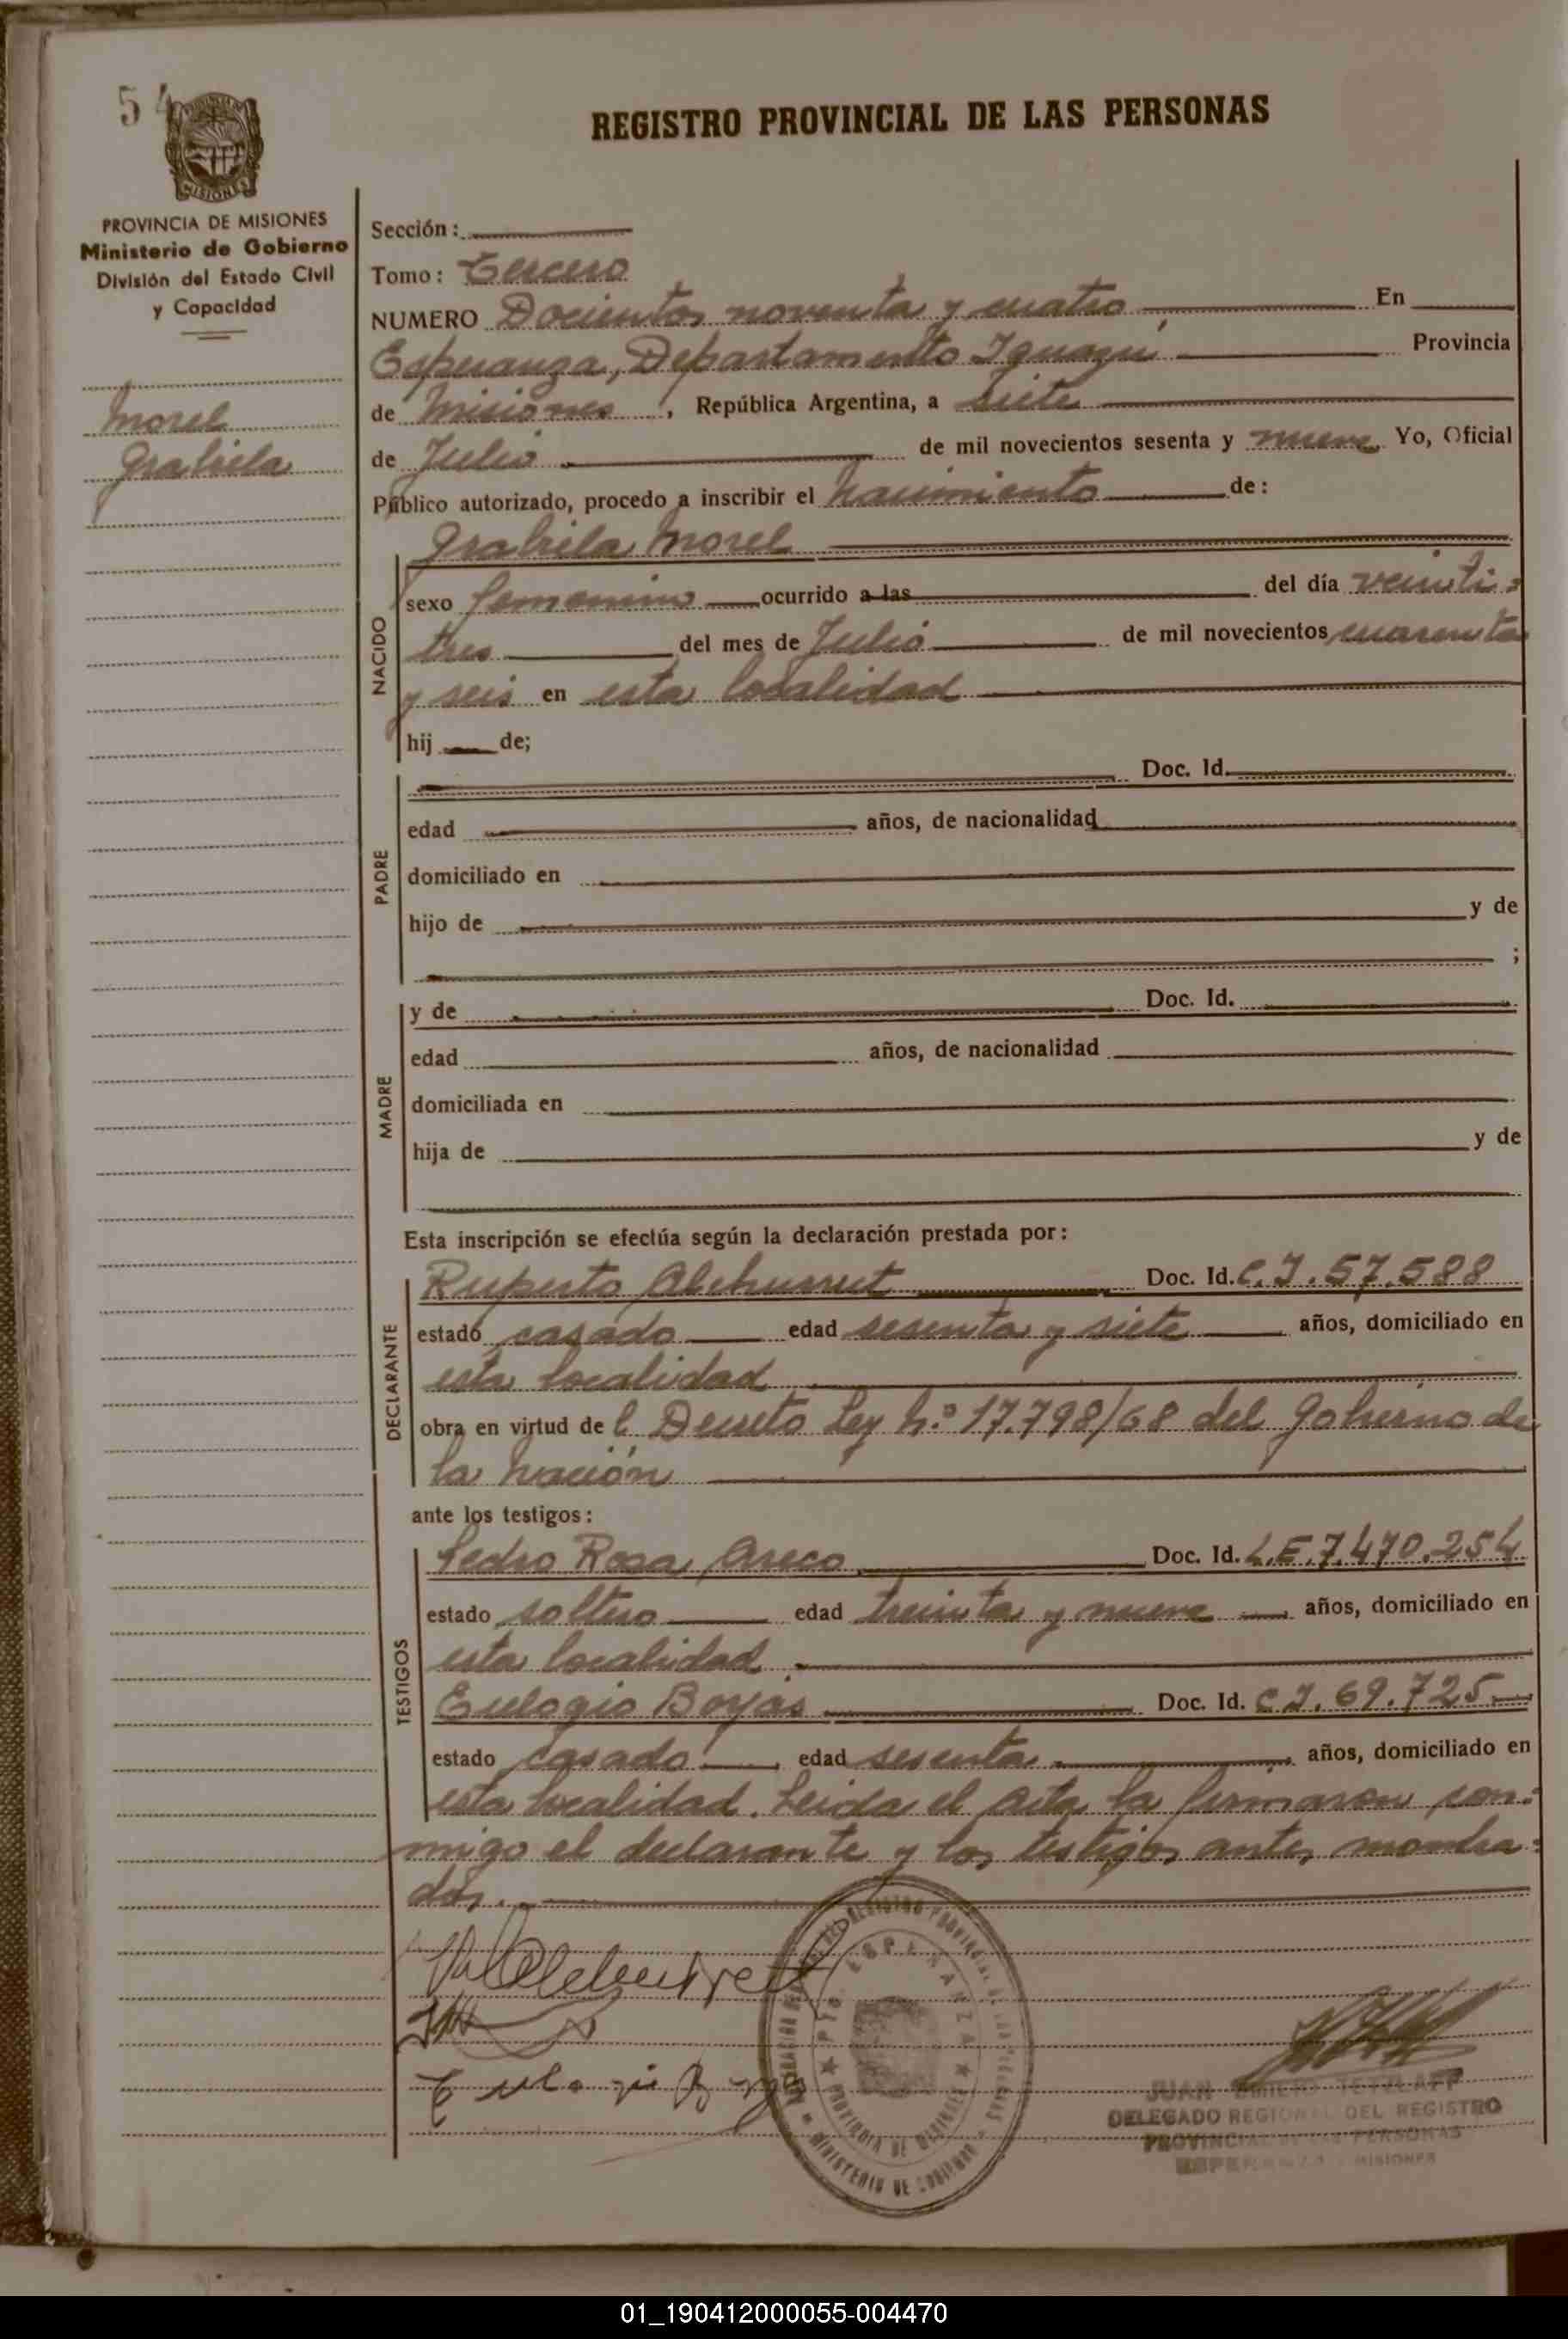 54
REGISTRO PROVINCIAL DE LAS PERSONAS
PROVINCIA DE MISIONES
Ministerio de Gobierno
División del Estado Civil
y Capacidad
Morel
Grabiela
Sección:
Tomo: Tercero
NUMERO Docientos noventa y cuatro En
Esperanza, Departamento Iguazú, Provincia
de Misiones, República Argentina, a siete
de Julio de mil novecientos sesenta y nueve Yo, Oficial
Público autorizado, procedo a inscribir el Nacimiento de:
Grabiela Morel
NACIDO
sexo femenino ocurrido a las del día veinti-
tres del mes de Julio de mil novecientos cuarenta
y seis en esta localidad
hij de;
PADRE
Doc. Id.
edad años, de nacionalidad
domiciliado en
hijo de y de
;
MADRE
y de Doc. Id.
edad años, de nacionalidad
domiciliada en
hija de y de
Esta inscripción se efectúa según la declaración prestada por:
DECLARANTE
Ruperto Doc. Id. C.I. 57.588
estado casado edad sesenta y siete años, domiciliado en
esta localidad
obra en virtud del Decreto Ley N.º 17.798/68 del Gobierno de
la Nación
ante los testigos:
TESTIGOS
Pedro Rosa Areco Doc. Id. L.E. 7.470.254
estado soltero edad treinta y nueve años, domiciliado en
esta localidad
Eulogio Borjas Doc. Id. C.I. 69.725
estado casado edad sesenta años, domiciliado en
esta localidad. Leida el Acta la firmaron con-
migo el declarante y los testigos antes mombra-
dos.
REGISTRO PROVINCIAL DE LAS PERSONAS
PTO. ESPERANZA
PROVINCIA DE MISIONES
MINISTERIO DE GOBIERNO
JUAN EMILIO TETZLAFF
DELEGADO REGIONAL DEL REGISTRO
PROVINCIAL DE LAS PERSONAS
ESPERANZA - MISIONES
01_190412000055-004470